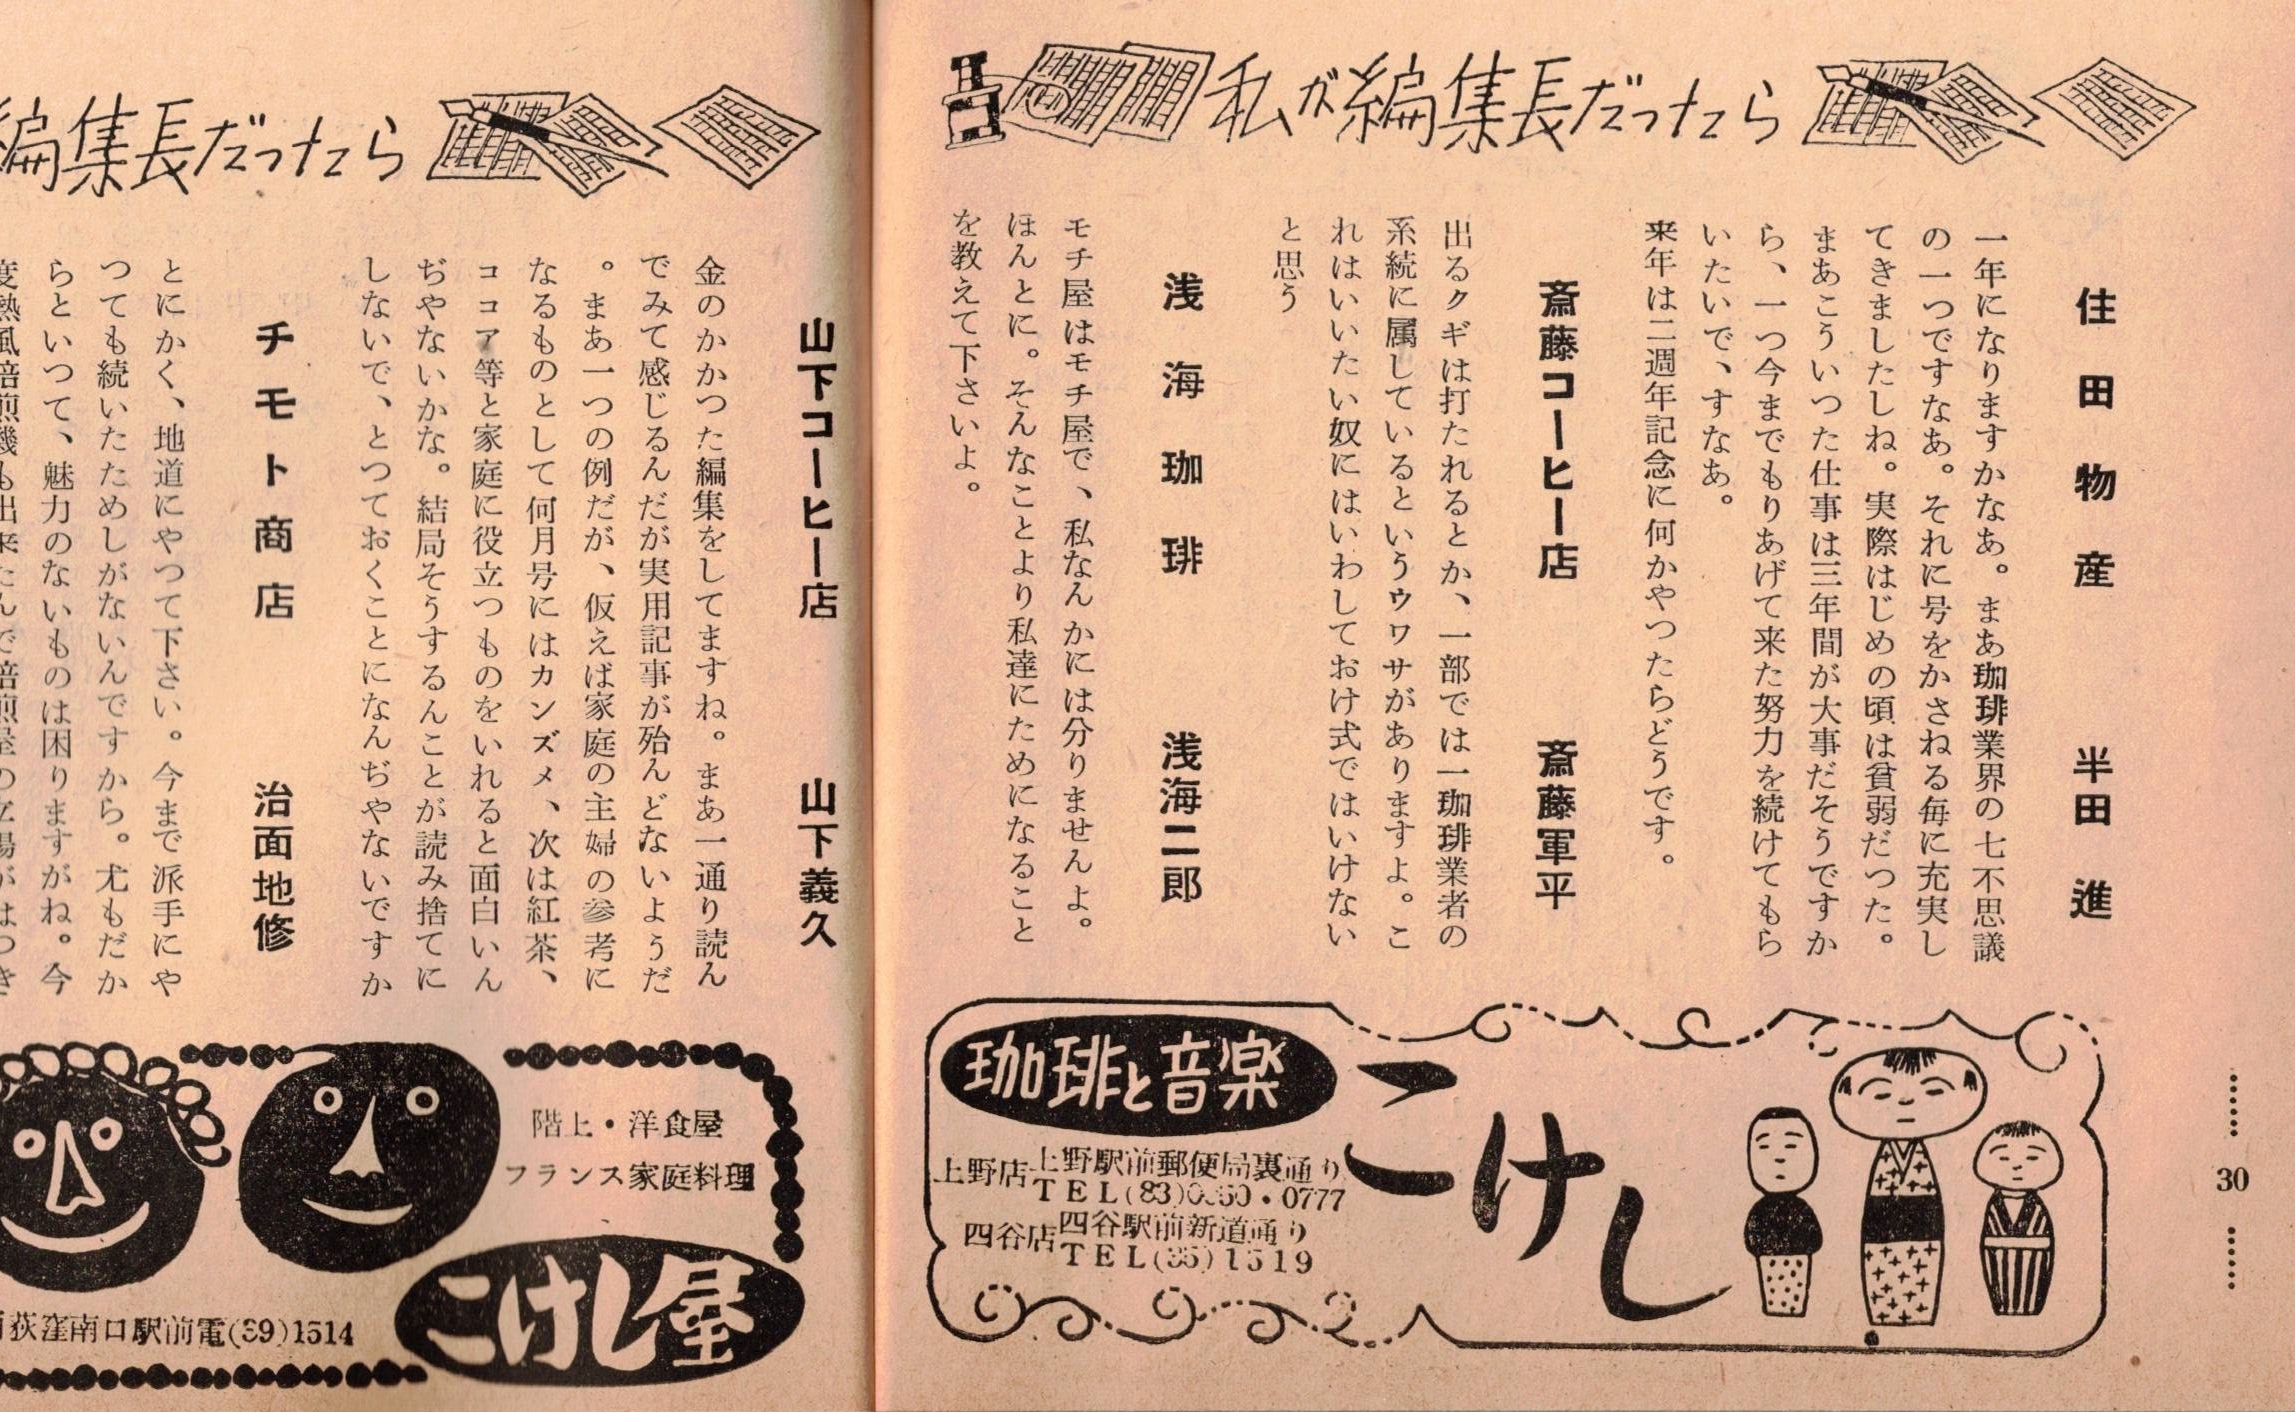 私が編集長だったら
住田物産 半田 進
一年になりますかなあ。まあ珈琲業界の七不思議
の一つですなあ。それに号をかさねる毎に充実し
てきましたしね。実際はじめの頃は貧弱だつた。
まあこういつた仕事は三年間が大事だそうですか
ら、一つ今までもりあげて来た努力を続けてもら
いたいで、すなあ。
来年は二週年記念に何かやつたらどうです。
斎藤コーヒー店 斎藤軍平
出るクギは打たれるとか、一部では一珈琲業者の
系続に属しているというウワサがありますよ。こ
れはいいたい奴にはいわしておけ式ではいけない
と思う
浅海珈琲 浅海二郎
モチ屋はモチ屋で、私なんかには分りませんよ。
ほんとに。そんなことより私達にためになること
を教えて下さいよ。
珈琲と音楽
こけし
上野店 上野駅前郵便局裏通り
TEL(83) ・0777
四谷店 四谷駅前新道通り
TEL(35)1519
30
編集長だったら
山下コーヒー店 山下義久
金のかかつた編集をしてますね。まあ一通り読ん
でみて感じるんだが実用記事が殆んどないようだ
。まあ一つの例だが、仮えば家庭の主婦の参考に
なるものとして何月号にはカンズメ、次は紅茶、
ココア等と家庭に役立つものをいれると面白いん
ぢやないかな。結局そうするんことが読み捨てに
しないで、とつておくことになんぢやないですか
チモト商店 治面地修
とにかく、地道にやつて下さい。今まで派手にや
つても続いたためしがないんですから。尤もだか
らといつて、魅力のないものは困りますがね。今
度熱風焙煎機も出来たんで焙煎屋の立場がはつき
階上・洋食屋
フランス家庭料理
こけし屋
荻窪南口駅前電(39)1514